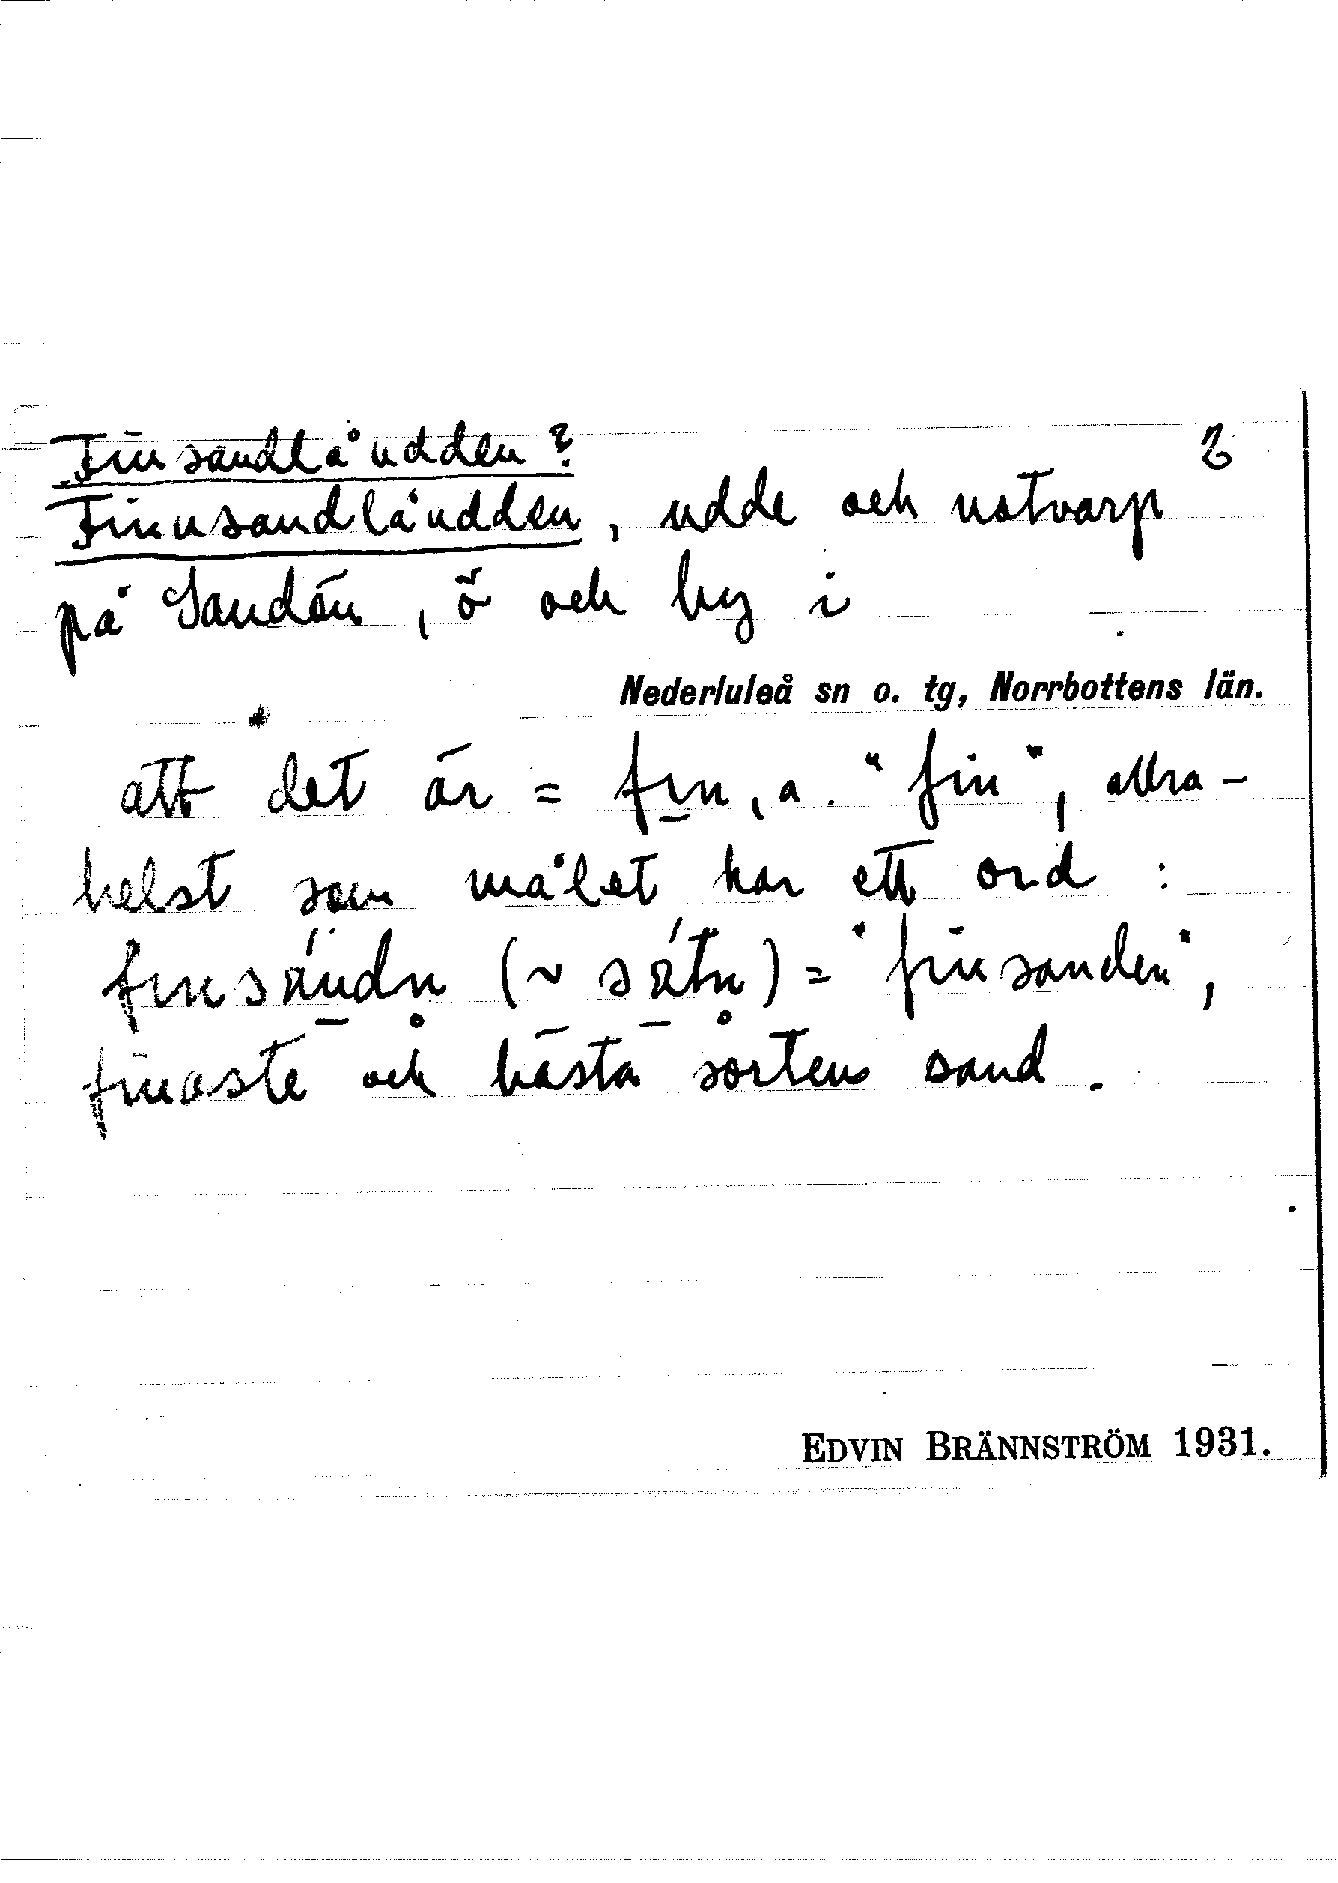 Finsandlåudden? 2
Finnsandlåudden, udde och notvarp
på Sandön, ö och by i
Nederluleå sn o. tg, Norrbottens län.
att det är = fı̱n, a. "fin", allra-
helst som målet har ett ord:
"finsanden",
finaste och bästa sorten sand.
EDVIN BRÄNNSTRÖM 1931.